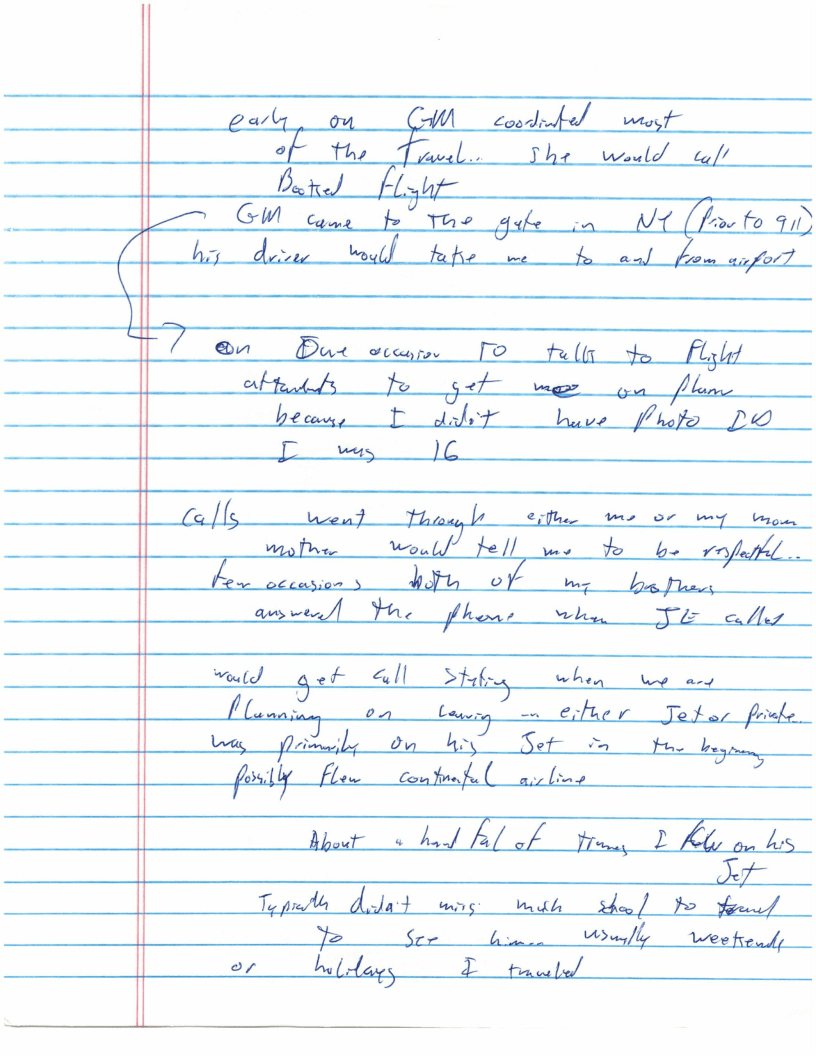 early on GM coordinated most
of the Travel... She would call
Booked flight
GM came to the gate in NY (Prior to 911)
his driver would take me to and from airport
on One occasion to talk to Flight
attendants to get me on plane
because I didn't have Photo ID
I was 16
Calls went through either me or my mom
mother would tell me to be respectful..
few occasions both of my brothers
answered the phone when JE called
would get call stating when we are
Planning on leaving - either Jet or private.
was primarily on his Jet in the beginning
possibly flew continental airline
About a hand ful of times I flew on his
Jet
Typically didn't miss much school to travel
to see him... usually weekends
or holidays I traveled